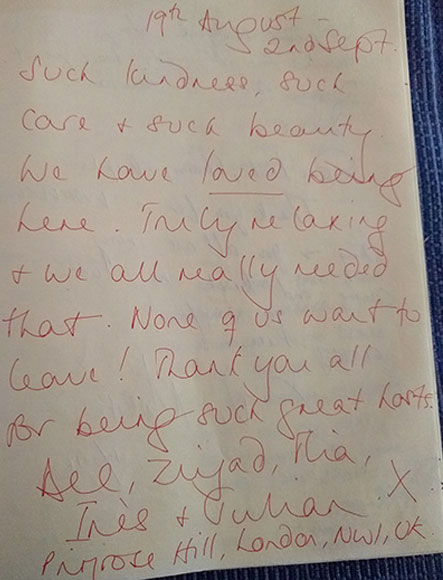 19th August -
2nd Sept.
Such kindness, such
care + such beauty.
We have loved being
here. Truly relaxing
+ we all really needed
that. None of us want to
leave! Thank you all
for being such great hosts.
Ziyad,
Inès + Julian X
Primrose Hill, London, NW1, UK.